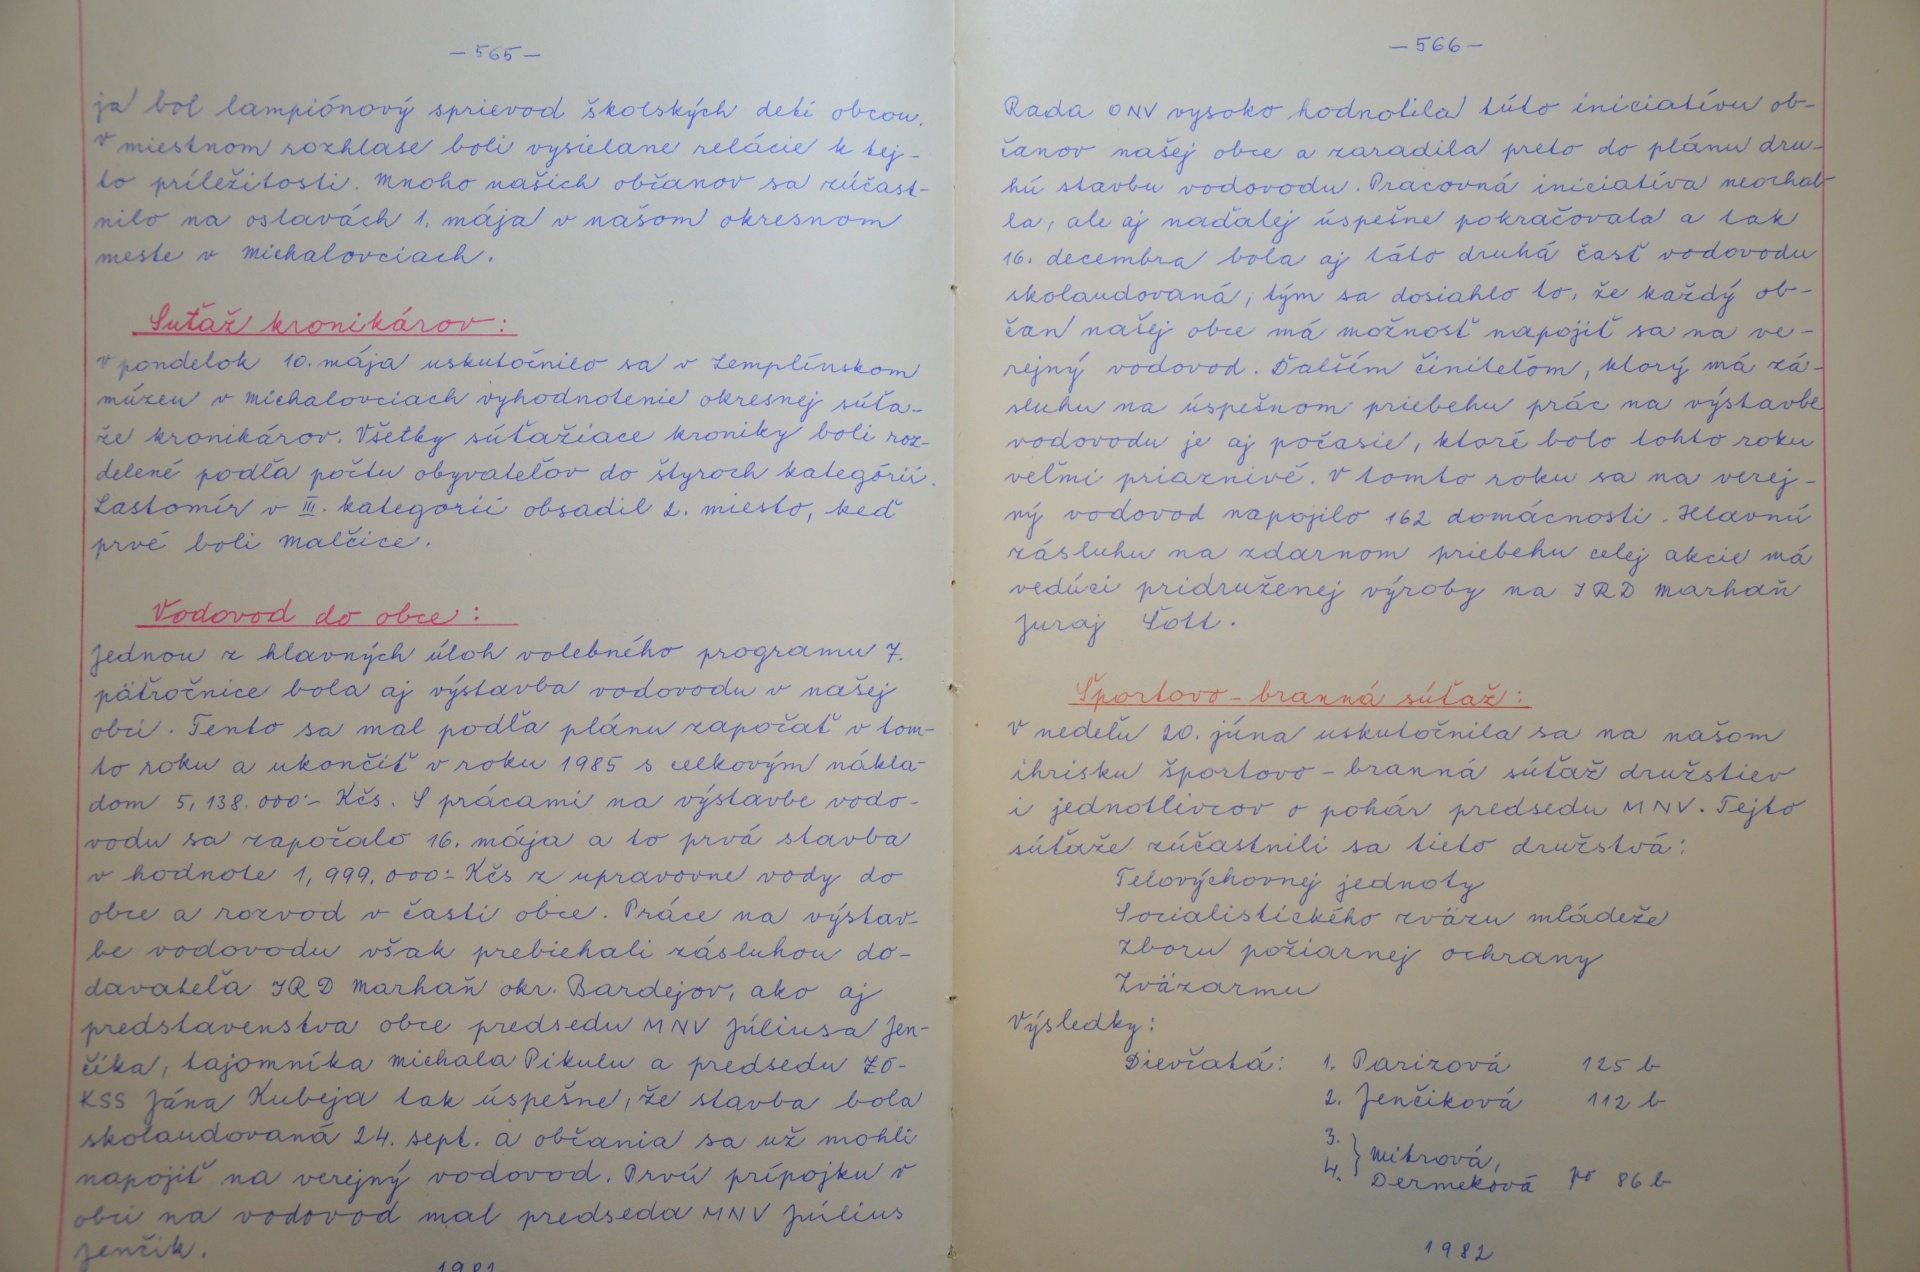 — 565 —
ja bol lampiónový sprievod školských detí obcou.
V miestnom rozhlase boli vysielane relácie k tej-
to príležitosti. Mnoho našich občanov sa zúčast-
nilo na oslavách 1. mája v našom okresnom
meste v Michalovciach.
Suťaž kronikárov:
V pondelok 10. mája uskutočnilo sa v Zemplínskom
múzeu v Michalovciach vyhodnotenie okresnej súťa-
že kronikárov. Všetky súťažiace kroniky boli roz-
delené podľa počtu obyvateľov do štyroch kategórií.
Lastomír v III. kategorií obsadil 2. miesto, keď
prvé boli Malčice.
Vodovod do obce:
Jednou z hlavných úloh volebného programu 7.
päťročnice bola aj výstavba vodovodu v našej
obci. Tento sa mal podľa plánu započať v tom-
to roku a ukončiť v roku 1985 s celkovým nákla-
dom 5,138.000.- Kčs. S prácami na výstavbe vodo-
vodu sa započalo 16. mája a to prvá stavba
v hodnote 1,999.000.- Kčs z upravovne vody do
obce a rozvod v časti obce. Práce na výstav-
be vodovodu však prebiehali zásluhou do-
davateľa JRD Marhaň okr. Bardejov, ako aj
predstavenstva obce predsedu MNV Júliusa Jen-
číka, tajomníka Michala Pikulu a predsedu ZO-
KSS Jána Kubeja tak úspešne, že stavba bola
skolaudovaná 24. sept. a občania sa už mohli
napojiť na verejný vodovod. Prvú prípojku v
obci na vodovod mal predseda MNV Július
Jenčík.
1982
— 566 —
Rada ONV vysoko hodnotila túto iniciatívu ob-
čanov našej obce a zaradila preto do plánu dru-
hú stavbu vodovodu. Pracovná iniciatíva neochab-
la, ale aj naďalej úspešne pokračovala a tak
16. decembra bola aj táto druhá časť vodovodu
skolaudovaná, tým sa dosiahlo to, že každý ob-
čan našej obce má možnosť napojiť sa na ve-
rejný vodovod. Ďalším činiteľom, ktorý má zá-
sluhu na úspešnom priebehu prác na výstavbe
vodovodu je aj počasie, ktoré bolo tohto roku
veľmi priaznivé. V tomto roku sa na verej-
ný vodovod napojilo 162 domácnosti. Hlavnú
zásluhu na zdarnom priebehu celej akcie má
vedúci pridruženej výroby na JRD Marhaň
Juraj Šott.
Športovo - branná súťaž:
V nedeľu 20. júna uskutočnila sa na našom
ihrisku športovo - branná súťaž družstiev
i jednotlivcov o pohár predsedu MNV. Tejto
súťaže zúčastnili sa tieto družstvá:
Telovýchovnej jednoty
Socialistického zväzu mládeže
Zboru požiarnej ochrany
Zväzarmu
Výsledky:
Dievčatá: 1. Parizová 125 b
2. Jenčíková 112 b
3. } Mitrová,
4. Dermeková po 86 b
1982